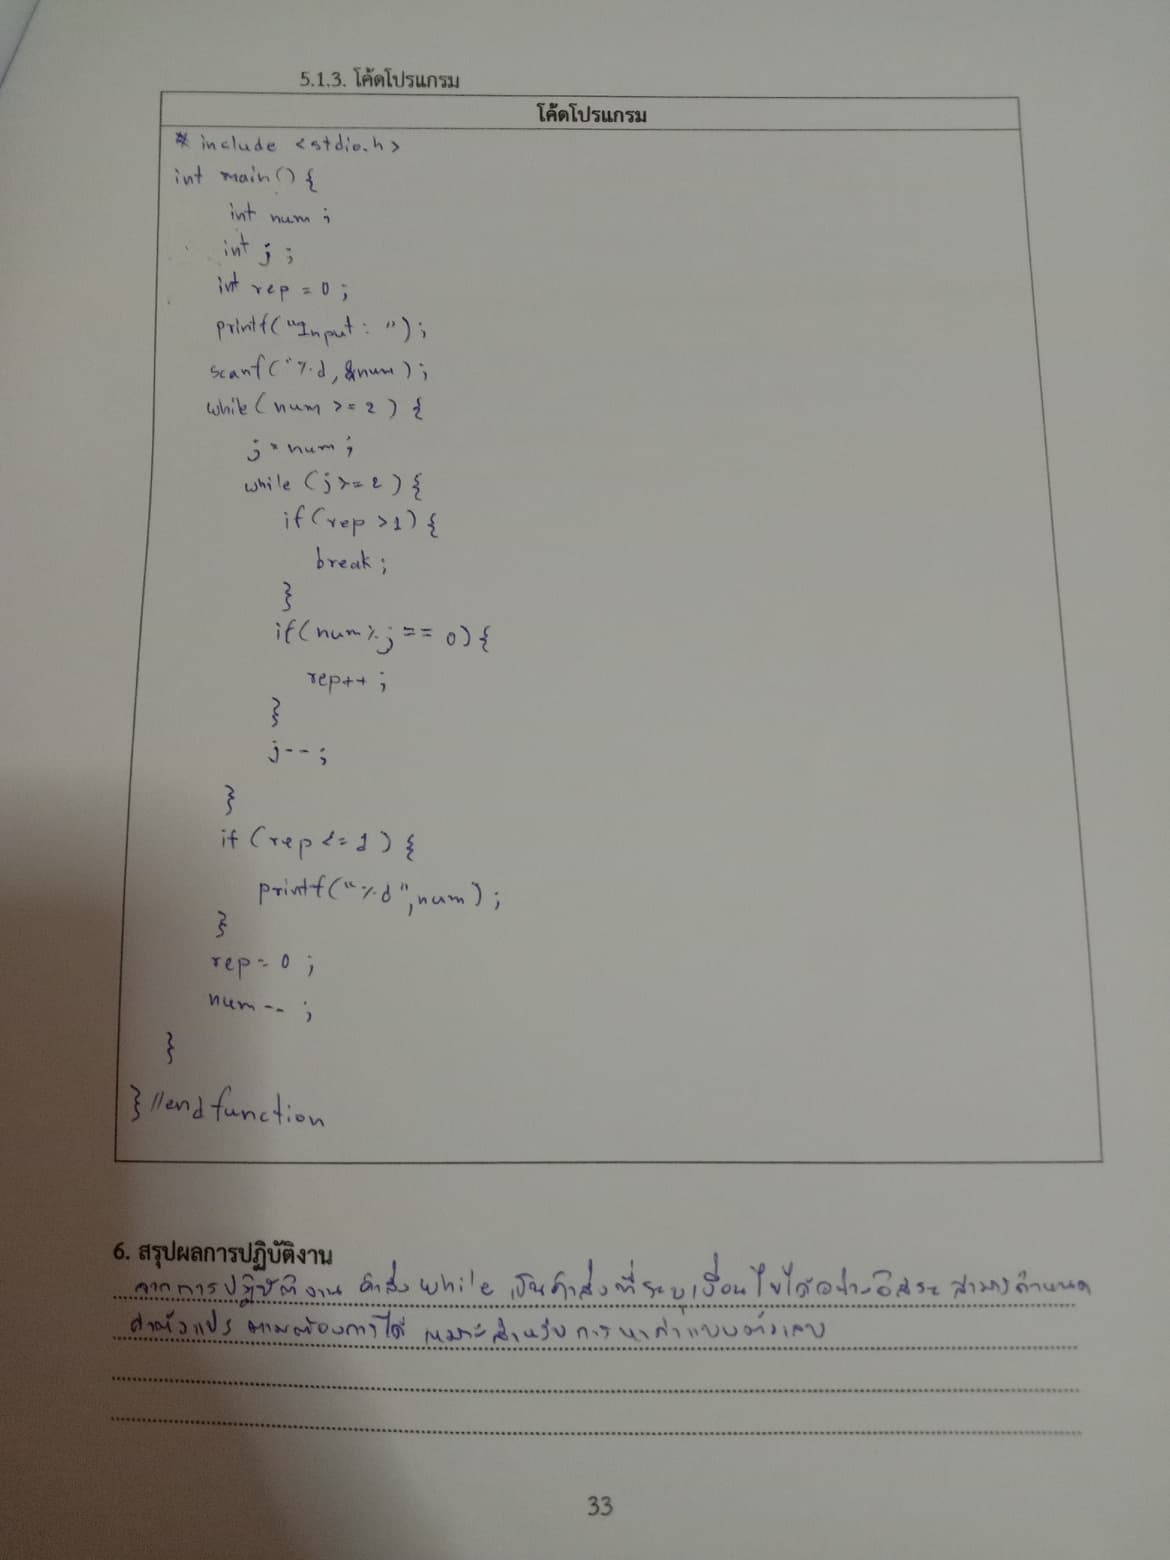 5.1.3. โค้ดโปรแกรม
โค้ดโปรแกรม
# include <stdio.h>
int main() {
int num ;
int j ;
int rep = 0 ;
printf("Input : ");
scanf("%d, &num);
while( num >= 2 ) {
j = num ;
while (j >= 2 ) {
if(rep >1) {
break ;
}
if(num % j == 0) {
rep++ ;
}
j-- ;
}
if (rep <= 1 ) {
printf("%d",num) ;
}
rep = 0 ;
num -- ;
}
} //end function
6. สรุปผลการปฏิบัติงาน
จากการปฏิบัติงาน คำสั่ง while เป็นคำสั่งที่ระบุเงื่อนไขได้อย่างอิสระ สามารถกำหนด
ค่าตัวแปร ตามต้องการได้ เหมาะสำหรับการหาค่าแบบตัวเลข
33